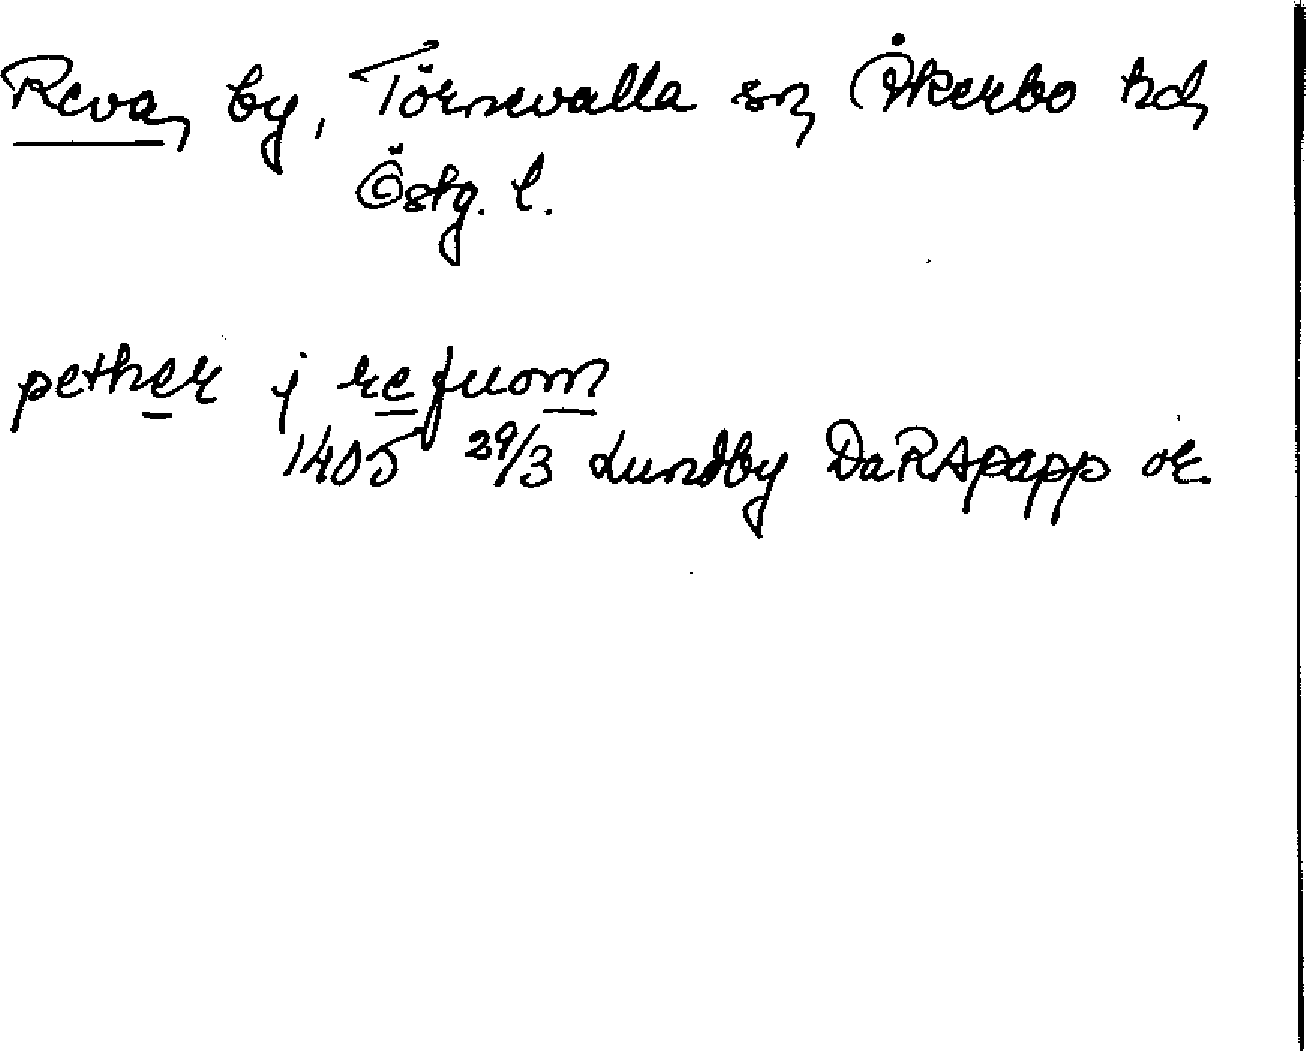 Reva, by, Törnevalla sn, Åkerbo hd,
Östg. l.
pether j refuom
1405 29/3 Lundby DaRApapp or.